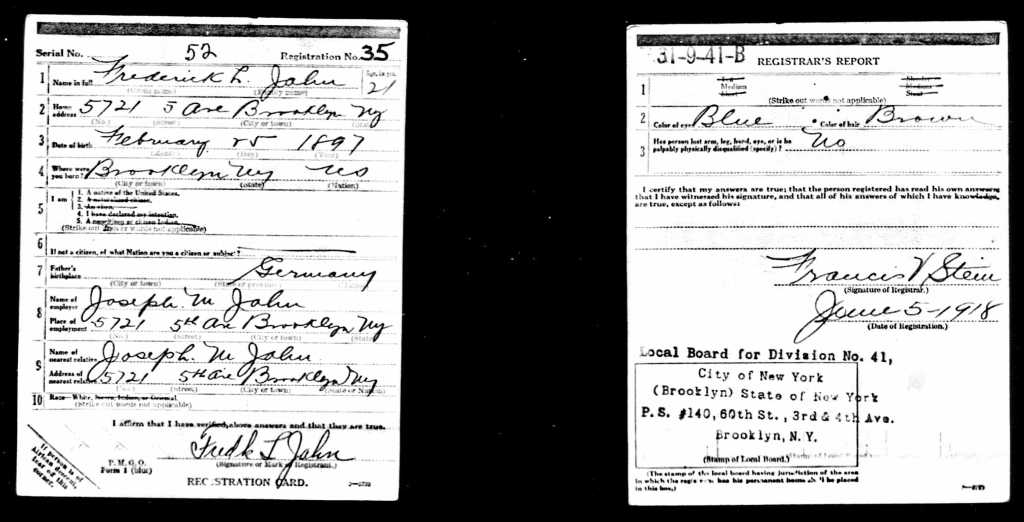 Serial No. 52 Registration No. 35
1 Name in full Frederick L. John Age, in yrs. 21
(Given name) (Family name)
2 Home address 5721 5 Ave Brooklyn Ny
(No.) (Street) (City or town) (State)
3 Date of birth February 25 1897
(Month) (Day) (Year)
4 Where were you born? Brooklyn Ny US
(City or town) (State) (Nation)
5 I am
1. A native of the United States.
2. A naturalized citizen.
3. An alien.
4. I have declared my intention.
5. A noncitizen or citizen Indian.
(Strike out lines or words not applicable)
6 If not a citizen, of what Nation are you a citizen or subject?
7 Father's birthplace Germany
(City or town) (State or province) (Nation)
8 Name of employer Joseph M John
Place of employment 5721 5th Ave Brooklyn Ny
(No.) (Street) (City or town) (State)
9 Name of nearest relative Joseph M John
Address of nearest relative 5721 5th Ave Brooklyn Ny
(No.) (Street) (City or town) (State or Nation)
10 Race—White, Negro, Indian, or Oriental
(Strike out words not applicable)
I affirm that I have verified above answers and that they are true.
Fredk L John
P. M. G. O.
Form 1 (blue)
(Signature or Mark of Registrant.)
REGISTRATION CARD.
If person is
African descent,
tear off this
corner.
31-9-41-B REGISTRAR'S REPORT
1 Medium
(Strike out words not applicable)
2 Color of eyes Blue Color of hair Brown
3 Has person lost arm, leg, hand, eye, or is he palpably physically disqualified (specify)? No
I certify that my answers are true; that the person registered has read his own answers
that I have witnessed his signature, and that all of his answers of which I have knowledge,
are true, except as follows:
Francis V Stein
(Signature of Registrar.)
June 5-1918
(Date of Registration.)
Local Board for Division No. 41,
City of New York
(Brooklyn) State of New York
P.S. #140, 60th St., 3rd & 4th Ave.
Brooklyn, N.Y.
(Stamp of Local Board.)
(The stamp of the local board having jurisdiction of the area
in which the registrant has his permanent home shall be placed
in this box.)